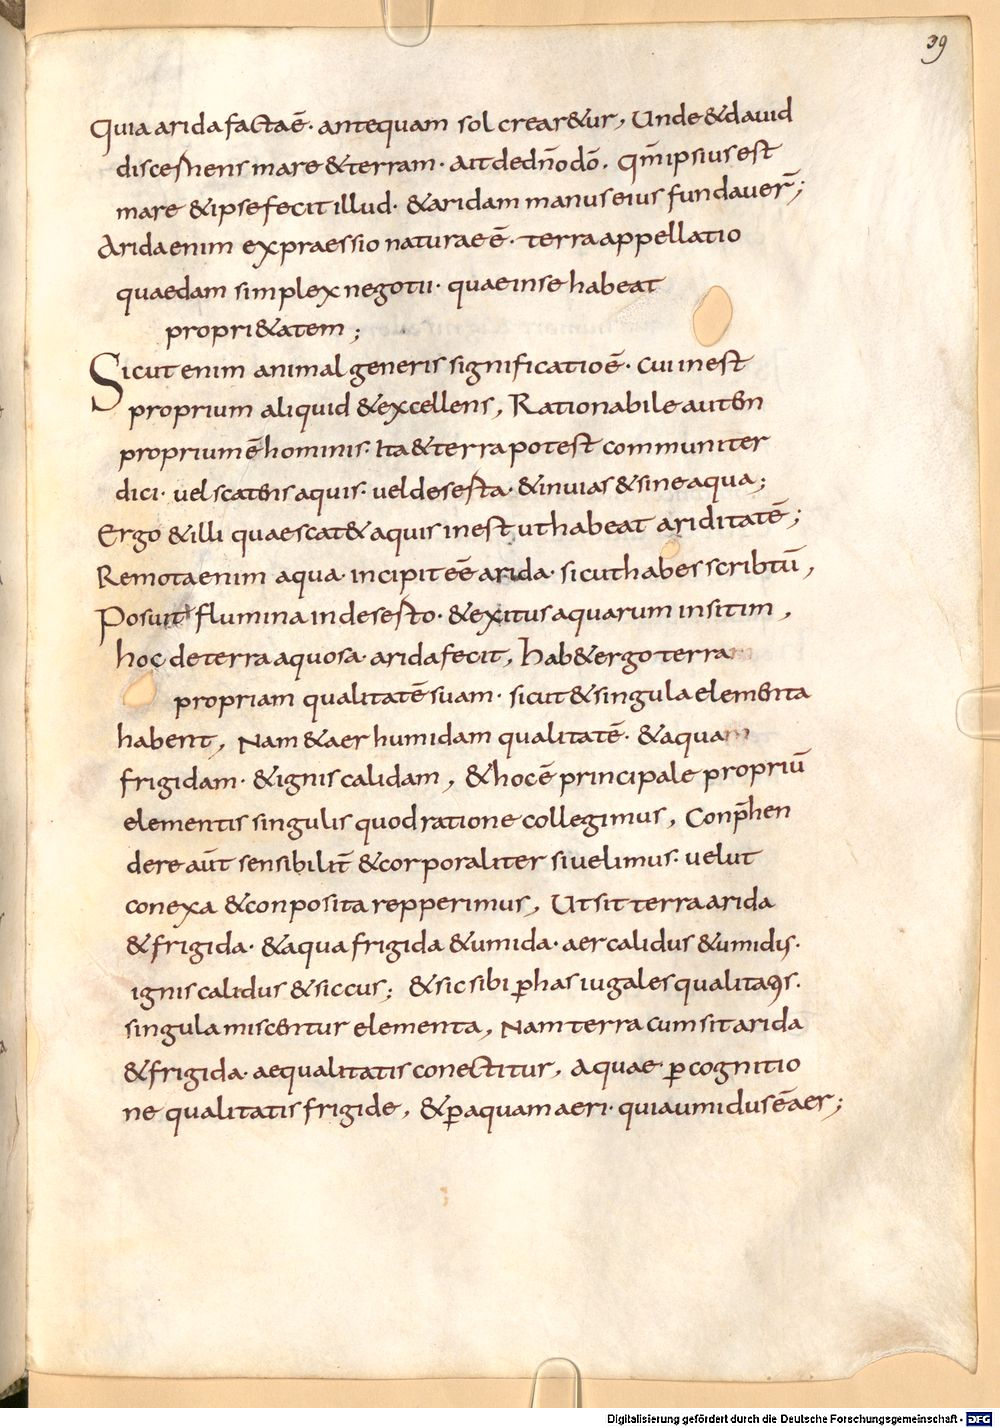 39
Quia arida facta ē· antequam sol crear&ur, Unde & dauid
discernens mare & terram· ait de dño dō. qm̄ ipsius est
mare & ipse fecit illud· & aridam manus eius fundauer̄;
Arida enim expraessio naturae ē· terra appellatio
quaedam simplex negotii· quae in se habeat
propri&atem;
Sicut enim animal generis significatio ē· cui inest
proprium aliquid & excellens, Rationabile autem
proprium ē hominis· Ita & terra potest communiter
dici· uel scatens aquis· uel deserta· & inuias & sine aqua;
Ergo & illi quae scat& aquis inest ut habeat ariditatē;
Remota enim aqua· incipit eē arida· sicut habes scribtū,
Posuit flumina in deserto· & exitus aquarum in sitim,
hoc de terra aquosa· arida fecit, hab& ergo terram
propriam qualitatē suam· sicut & singula elementa
habent, Nam & aer humidam qualitatē· & aquam
frigidam· & ignis calidam, & hoc ē principale propriū
elementis singulis quod ratione collegimus, Conp̄hen
dere aūt sensibilit̄ & corporaliter si uelimus· uelut
conexa & conposita repperimus, Ut sit terra arida
& frigida· & aqua frigida & umida· aer calidus & umidus·
ignis calidus & siccus; & sic sibi ꝑ has iugales qualitates·
singula miscentur elementa, Nam terra cum sit arida
& frigida· aequalitatis conectitur, Aquae ꝑ cognitio
ne qualitatis frigide, & ꝑ aquam aeri· quia umidus ē aer;
Digitalisierung gefördert durch die Deutsche Forschungsgemeinschaft - DFG